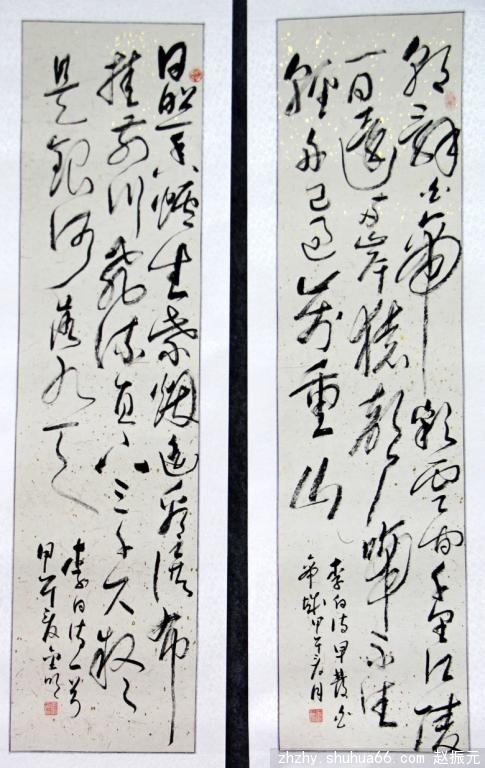 朝辞白帝彩雲間千里江陵
一日還两岸猿聲啼不住
輕舟已過萬重山
李白诗早發白
帝城甲午夏月
日照香爐生紫煙遥看瀑布
挂前川飛流直下三千尺疑
是銀河落九天
李白诗一首
甲午夏
zhzhy.shuhua66.com 赵振元